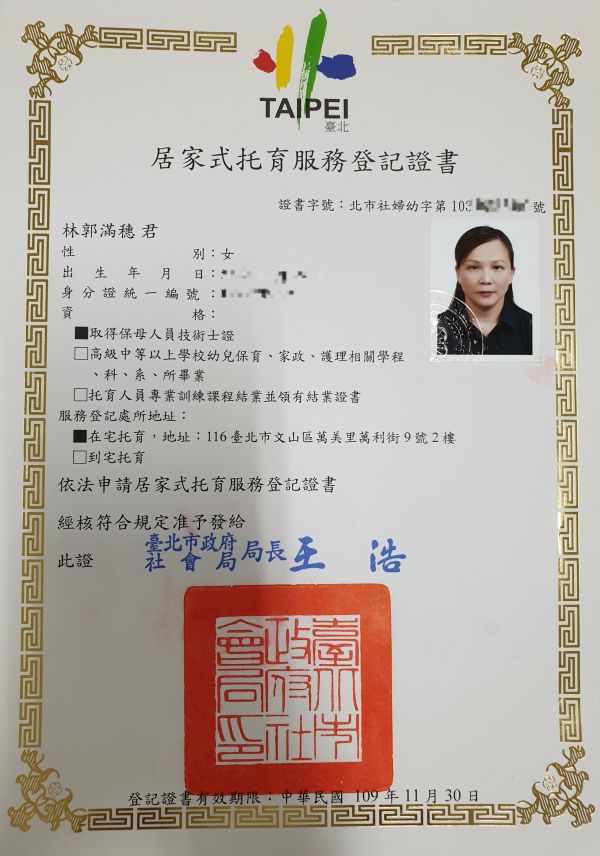 TAIPEI
臺北
居家式托育服務登記證書
證書字號：北市社婦幼字第103 號
林郭滿穗 君
性別：女
出生年月日：
身分證統一編號：
資格：
■取得保母人員技術士證
□高級中等以上學校幼兒保育、家政、護理相關學程
、科、系、所畢業
□托育人員專業訓練課程結業並領有結業證書
服務登記處所地址：
■在宅托育，地址：116臺北市文山區萬美里萬利街9號2樓
□到宅托育
依法申請居家式托育服務登記證書
經核符合規定准予發給
此證
臺北市政府
社會局局長王浩
臺北市
政府社
會局印
登記證書有效期限：中華民國 109年11月30日